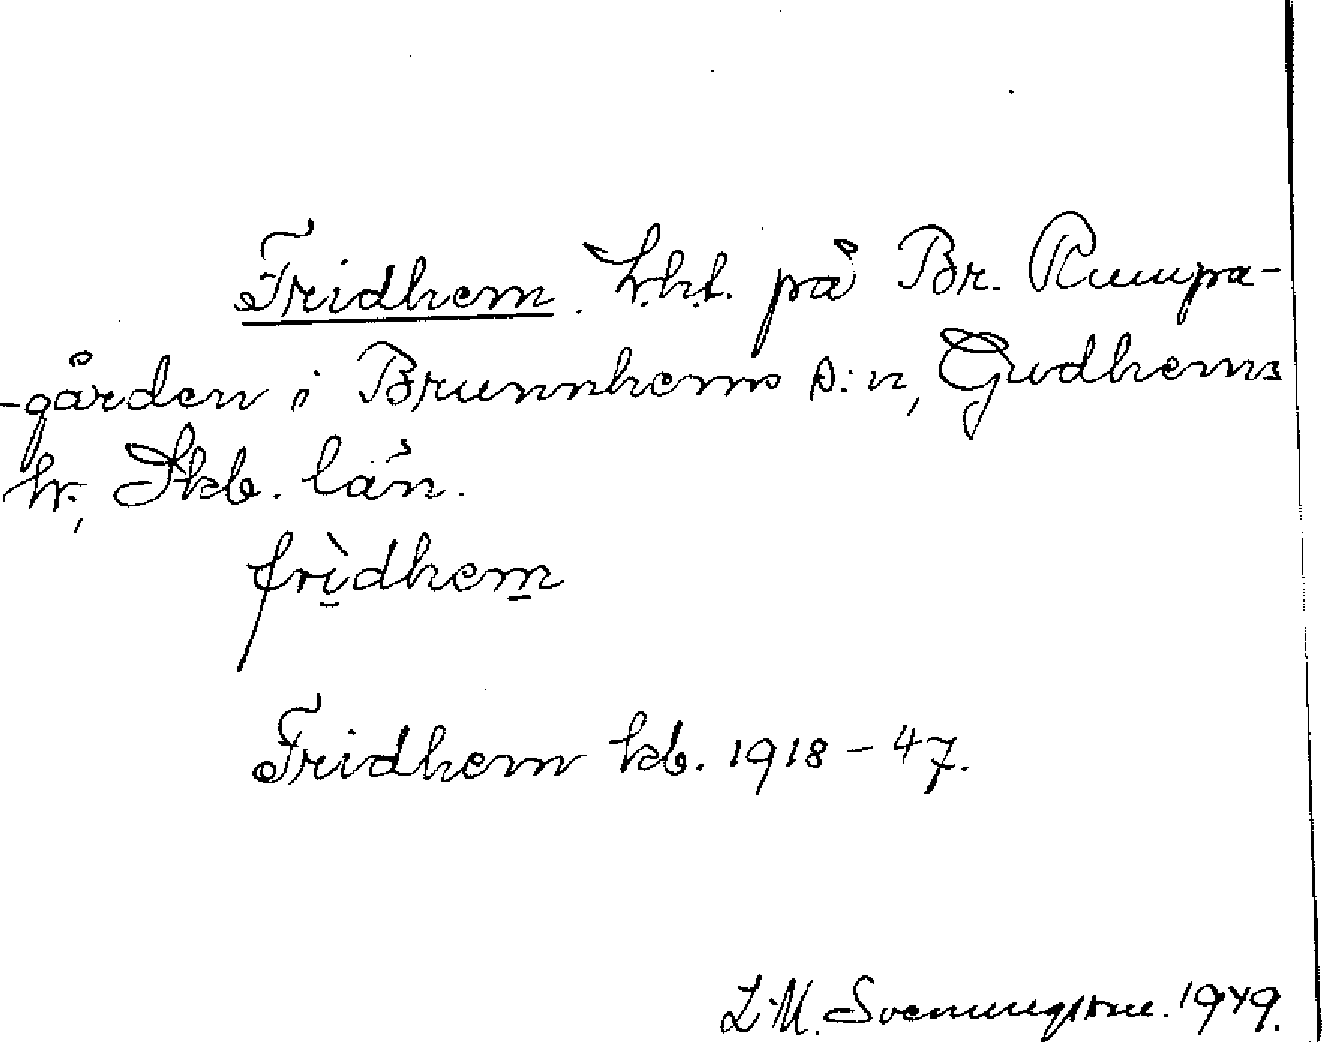 Fridhem. Lht. på Br. Rumpa-
-gården i Brunnhems s:n, Gudhems
hr, Skb. län.
frìdhem
Fridhem kb. 1918-47.
L.M. Svenungsson. 1949.